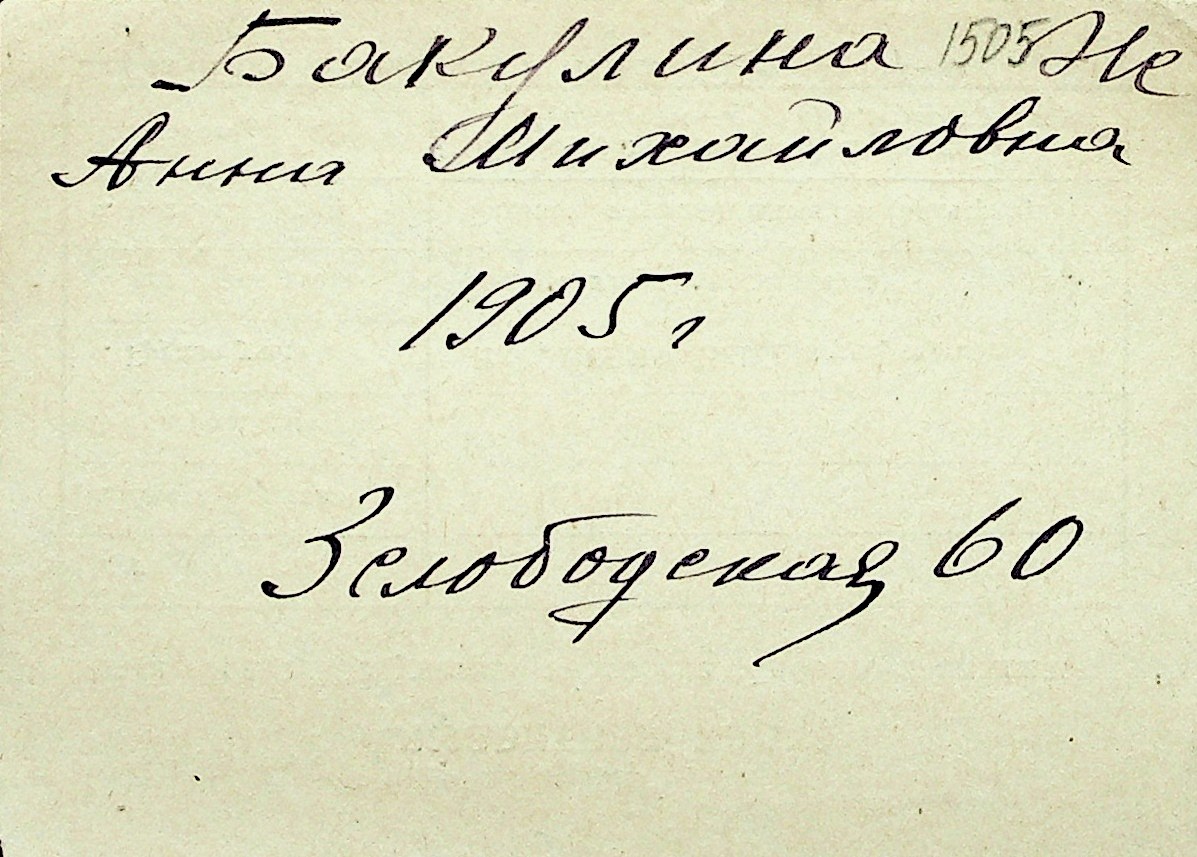 Бакулина 1505 Же
Анна Михайловна
1905 г
3 слободская 60